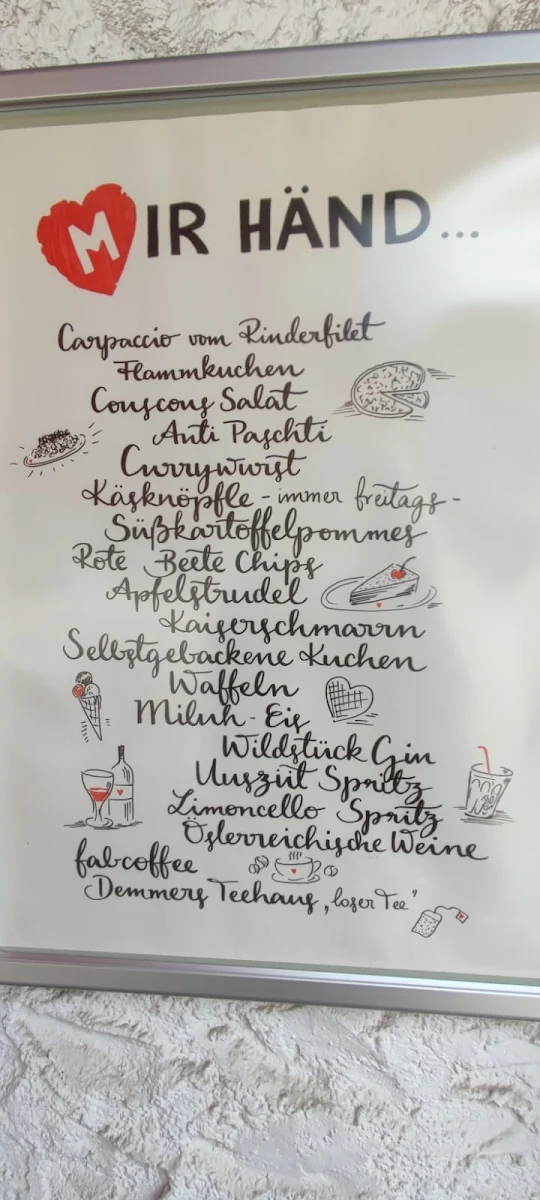 MIR HÄND...
Carpaccio vom Rinderfilet
Flammkuchen
Couscous Salat
Anti Paschti
Currywurst
Käsknöpfle - immer freitags -
Süßkartoffelpommes
Rote Beete Chips
Apfelstrudel
Kaiserschmarrn
Selbstgebackene Kuchen
Waffeln
Milch-Eis
Wildstück Gin
Spritz
Limoncello Spritz
Österreichische Weine
fabcoffee
Demmers Teehaus „loser Tee"